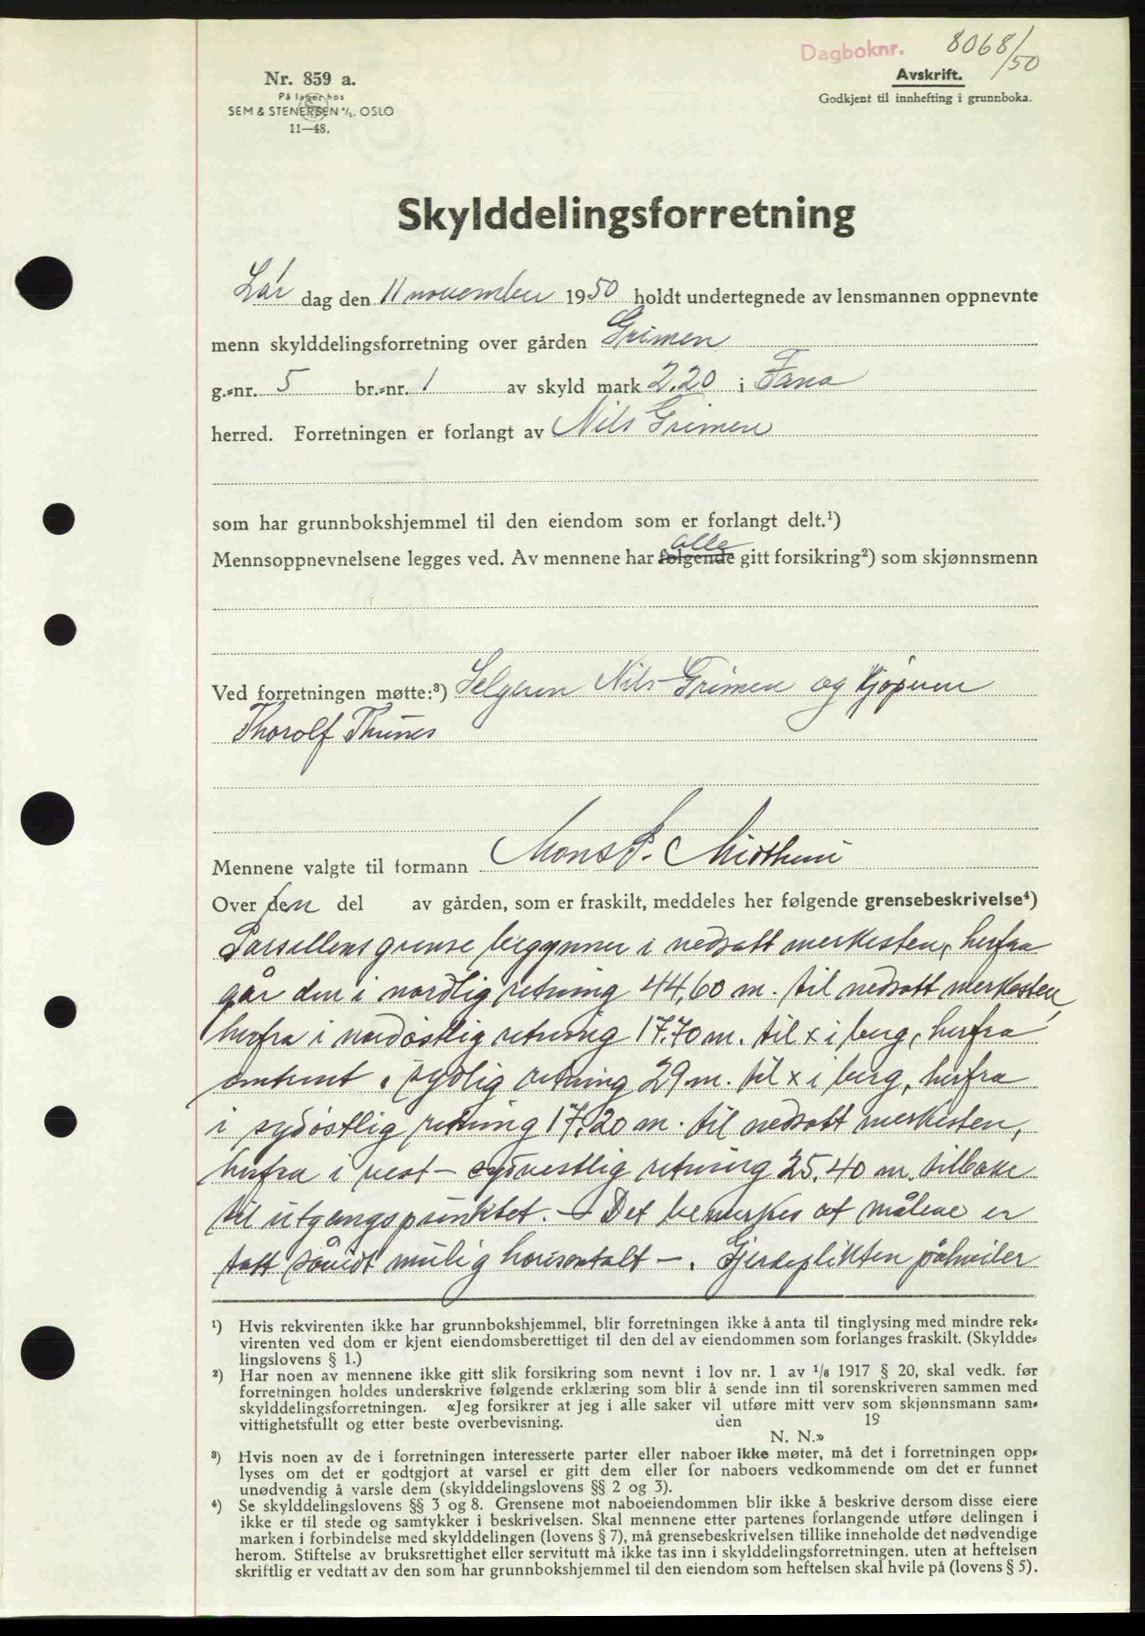 Dagboknr. 8068/50
Nr. 859 a.
På lager hos
SEM & STENERSEN A/S. OSLO
11—48.
Avskrift.
Godkjent til innhefting i grunnboka.
Skylddelingsforretning
Lør dag den 11 november 1950 holdt undertegnede av lensmannen oppnevnte
menn skylddelingsforretning over gården Grimen
g.-nr. 5 br.-nr. 1 av skyld mark 2.20 i Fana
herred. Forretningen er forlangt av Nils Grimen
som har grunnbokshjemmel til den eiendom som er forlangt delt.¹)
alle
Mennsoppnevnelsene legges ved. Av mennene har følgende gitt forsikring²) som skjønnsmenn
Ved forretningen møtte:³) Selgeren Nils Grimen og Kjøperen
Thorolf Thunes
Mennene valgte til formann Mons P. Midthun
Over den del av gården, som er fraskilt, meddeles her følgende grensebeskrivelse⁴)
Parsellens grense begynner i nedsatt merkesten, herfra
går den i nordlig retning 44,60 m. til nedsatt merkesten,
herfra i nordøstlig retning 17.70 m. til x i berg, herfra
omtrent i sydlig retning 29 m. til x i berg, herfra
i sydøstlig retning 17,20 m. til nedsatt merkesten,
herfra i vest - sydvestlig retning 25.40 m. tilbake
til utgangspunktet. — Det bemerkes at målene er
tatt såvidt mulig horisontalt —. Gjerdeplikten påhviler
¹) Hvis rekvirenten ikke har grunnbokshjemmel, blir forretningen ikke å anta til tinglysing med mindre rek-
virenten ved dom er kjent eiendomsberettiget til den del av eiendommen som forlanges fraskilt. (Skyldde-
lingslovens § 1.)
²) Har noen av mennene ikke gitt slik forsikring som nevnt i lov nr. 1 av 1/6 1917 § 20, skal vedk. før
forretningen holdes underskrive følgende erklæring som blir å sende inn til sorenskriveren sammen med
skylddelingsforretningen. «Jeg forsikrer at jeg i alle saker vil utføre mitt verv som skjønnsmann sam-
vittighetsfullt og etter beste overbevisning. den 19
N. N.»
³) Hvis noen av de i forretningen interesserte parter eller naboer ikke møter, må det i forretningen opp-
lyses om det er godtgjort at varsel er gitt dem eller for naboers vedkommende om det er funnet
unødvendig å varsle dem (skylddelingslovens §§ 2 og 3).
⁴) Se skylddelingslovens §§ 3 og 8. Grensene mot naboeiendommen blir ikke å beskrive dersom disse eiere
ikke er til stede og samtykker i beskrivelsen. Skal mennene etter partenes forlangende utføre delingen i
marken i forbindelse med skylddelingen (lovens § 7), må grensebeskrivelsen tillike inneholde det nødvendige
herom. Stiftelse av bruksrettighet eller servitutt må ikke tas inn i skylddelingsforretningen, uten at heftelsen
skriftlig er vedtatt av den som har grunnbokshjemmel til den eiendom som heftelsen skal hvile på (lovens § 5).